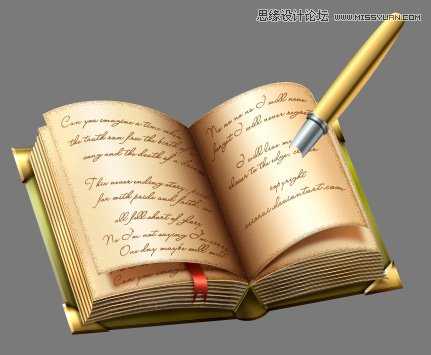 思缘设计论坛 WWW.MISSYUAN.COM
Can you imagine a time when
the truth ran free the birth
song and the death of a
This never ending story
for with pride and fate
all fall short of glory
No I'm not saying I
One day maybe will
Can you imagine
No no no no I will never
forget I will never regret
I will live my
closer to the edge
copyright
deviantart.com